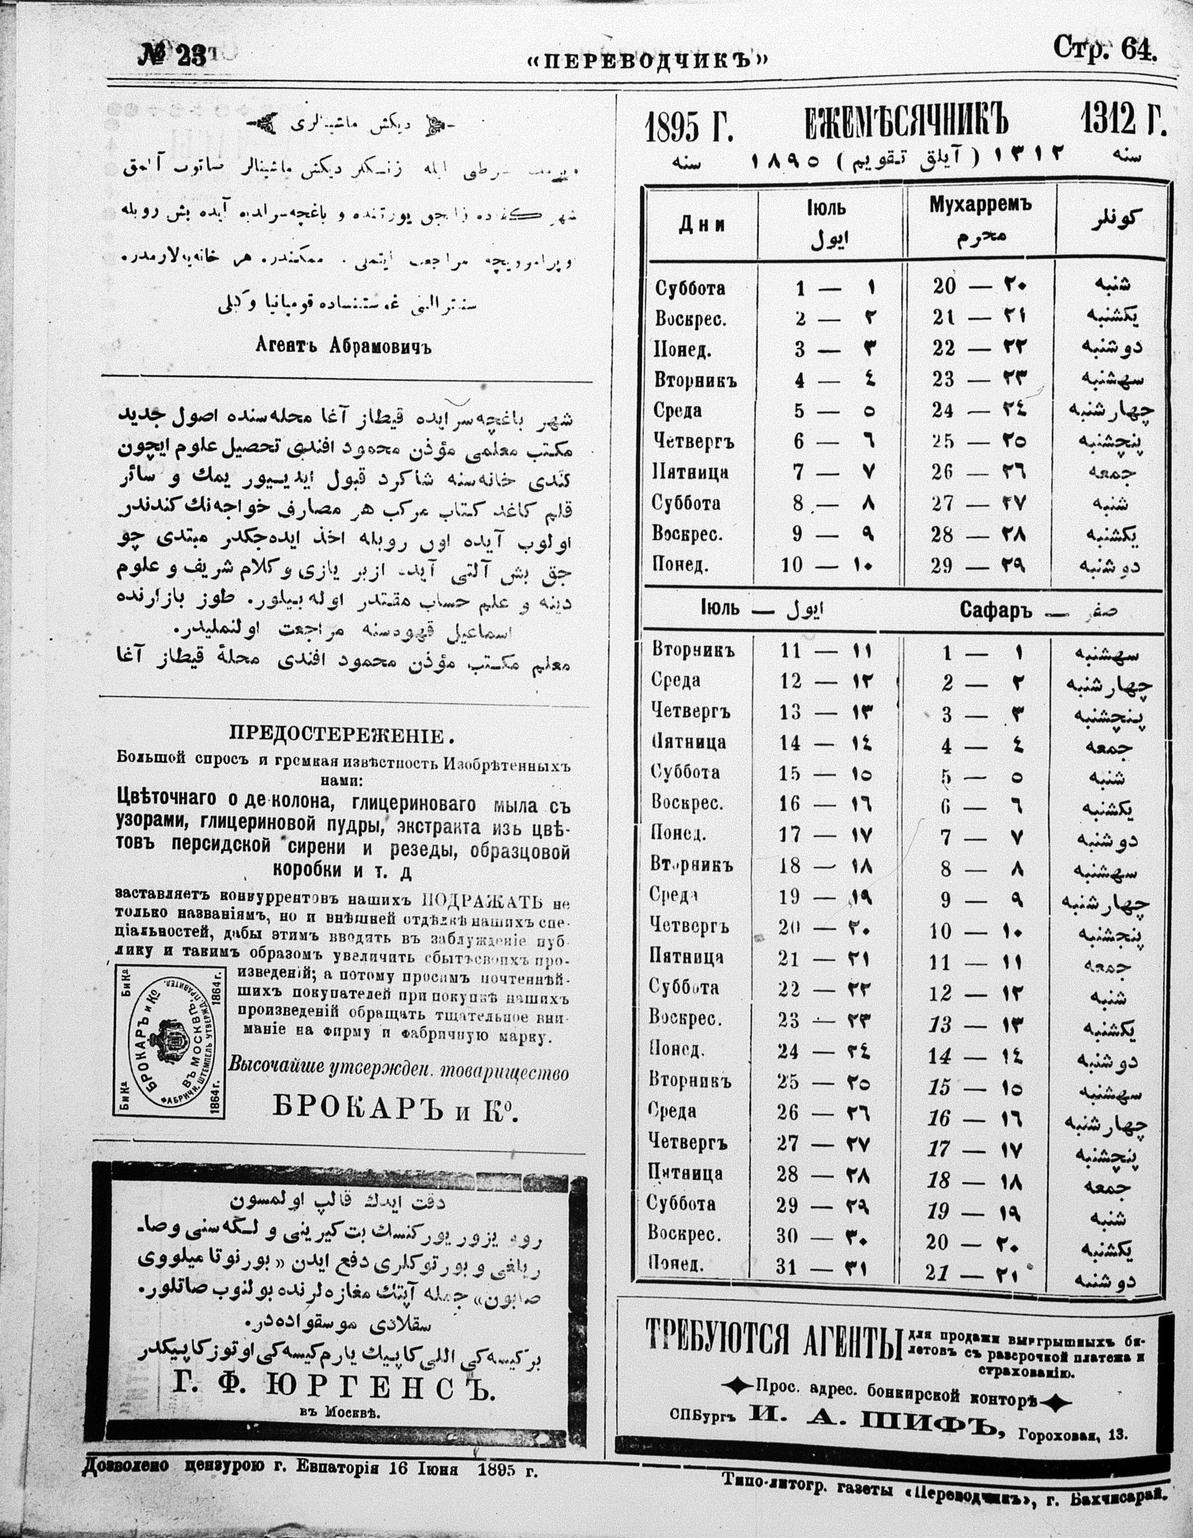 № 23
«ПЕРЕВОДЧИКЪ»
Стр. 64.
ديكش ماشينالری
ايله زنكلر ديكش ماشينالر صاتوب آلمق
شهر يورتنده و باغچه‌سرايده آيده بش روبله
مراجعت ايتملی. ممكندر. هر خانه‌يه لازمدر.
قومپانيا وكيلی
Агентъ Абрамовичъ
شهر باغچه‌سرايده قيطاز آغا محله‌سنده اصول جديد
مكتب معلمی مؤذن محمود افندی تحصيل علوم ايچون
كندی خانه‌سنه شاكرد قبول ايديیور يمك و سائر
قلم كاغد كتاب مركب هر مصارف خواجه‌نك كندندر
اولوب آيده اون روبله اخذ ايده‌جكدر مبتدی چو
جق بش آلتی آيده ازبر يازی و كلام شريف و علوم
دينه و علم حساب مقتدر اوله بيلور. طوز بازارنده
اسماعيل قهوه‌سنه مراجعت اولنمليدر.
معلم مكتب مؤذن محمود افندی محلۀ قيطاز آغا
ПРЕДОСТЕРЕЖЕНІЕ.
Большой спросъ и громкая извѣстность Изобрѣтенныхъ
нами:
Цвѣточнаго о де колона, глицериноваго мыла съ
узорами, глицериновой пудры, экстракта изъ цвѣ-
товъ персидской сирени и резеды, образцовой
коробки и т. д
заставляетъ конкуррентовъ нашихъ ПОДРАЖАТЬ не
только названіямъ, но и внѣшней отдѣлкѣ нашихъ спе-
ціальностей, дабы этимъ вводить въ заблужденіе пуб-
лику и такимъ образомъ увеличить сбытъ своихъ про-
изведеній; а потому просимъ почтеннѣй-
шихъ покупателей при покупкѣ нашихъ
произведеній обращать тщательное вни-
маніе на фирму и фабричную марку.
БиКа
1864 г.
БРОКАРЪ и Ко.
ВЪ МОСКВѢ.
ФАБРИЧН. ШТЕМПЕЛЬ УТВЕРЖД. ПРАВИТЕЛ.
БиКа
1864 г.
Высочайше утвержден. товарищество
БРОКАРЪ и Ко.
دقت ايدك قالپ اولمسون
روو يزور يوركنسك بت كيرينی و لكه‌سنی و صا-
ريلغی و بورتوكلری دفع ايدن «بورنوتا ميلووی
صابون» جمله آپتك مغازه‌لرنده بولنوب صاتلور.
سقلادی موسقواده‌در.
بر كيسه‌كی اللی كاپيك يارم كيسه‌كی اوتوز كاپيكدر
Г. Ф. ЮРГЕНСЪ.
въ Москвѣ.
1895 Г. ЕЖЕМѢСЯЧНИКЪ 1312 Г.
سنه ١٣١٢ (آيلق تقويم) ١٨٩٥ سنه
Дни Іюль Мухарремъ كونلر
ايول محرم
Суббота 1 — ١ 20 — ٢٠ شنبه
Воскрес. 2 — ٢ 21 — ٢١ يكشنبه
Понед. 3 — ٣ 22 — ٢٢ دوشنبه
Вторникъ 4 — ٤ 23 — ٢٣ سه‌شنبه
Среда 5 — ٥ 24 — ٢٤ چهارشنبه
Четвергъ 6 — ٦ 25 — ٢٥ پنجشنبه
Пятница 7 — ٧ 26 — ٢٦ جمعه
Суббота 8 — ٨ 27 — ٢٧ شنبه
Воскрес. 9 — ٩ 28 — ٢٨ يكشنبه
Понед. 10 — ١٠ 29 — ٢٩ دوشنبه
Іюль — ايول Сафаръ — صفر
Вторникъ 11 — ١١ 1 — ١ سه‌شنبه
Среда 12 — ١٢ 2 — ٢ چهارشنبه
Четвергъ 13 — ١٣ 3 — ٣ پنجشنبه
Пятница 14 — ١٤ 4 — ٤ جمعه
Суббота 15 — ١٥ 5 — ٥ شنبه
Воскрес. 16 — ١٦ 6 — ٦ يكشنبه
Понед. 17 — ١٧ 7 — ٧ دوشنبه
Вторникъ 18 — ١٨ 8 — ٨ سه‌شنبه
Среда 19 — ١٩ 9 — ٩ چهارشنبه
Четвергъ 20 — ٢٠ 10 — ١٠ پنجشنبه
Пятница 21 — ٢١ 11 — ١١ جمعه
Суббота 22 — ٢٢ 12 — ١٢ شنبه
Воскрес. 23 — ٢٣ 13 — ١٣ يكشنبه
Понед. 24 — ٢٤ 14 — ١٤ دوشنبه
Вторникъ 25 — ٢٥ 15 — ١٥ سه‌شنبه
Среда 26 — ٢٦ 16 — ١٦ چهارشنبه
Четвергъ 27 — ٢٧ 17 — ١٧ پنجشنبه
Пятница 28 — ٢٨ 18 — ١٨ جمعه
Суббота 29 — ٢٩ 19 — ١٩ شنبه
Воскрес. 30 — ٣٠ 20 — ٢٠ يكشنبه
Понед. 31 — ٣١ 21 — ٢١ دوشنبه
ТРЕБУЮТСЯ АГЕНТЫ для продажи выигрышныхъ би-
летовъ съ разсрочкой платежа и
страхованію.
Прос. адрес. бонкирской конторѣ
СПБургъ И. А. ШИФЪ, Гороховая, 13.
Дозволено цензурою г. Евпаторія 16 Іюня 1895 г.
Типо-литогр. газеты «Переводчикъ», г. Бахчисарай.